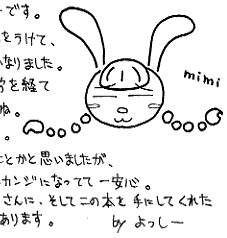 ーです。
をうけて、
いなりました。
を経て
ね。
mimi
ことかと思いましたが、
カンジになってて一安心。
さんに、そしてこの本を手にしてくれた
あります。
by よっしー